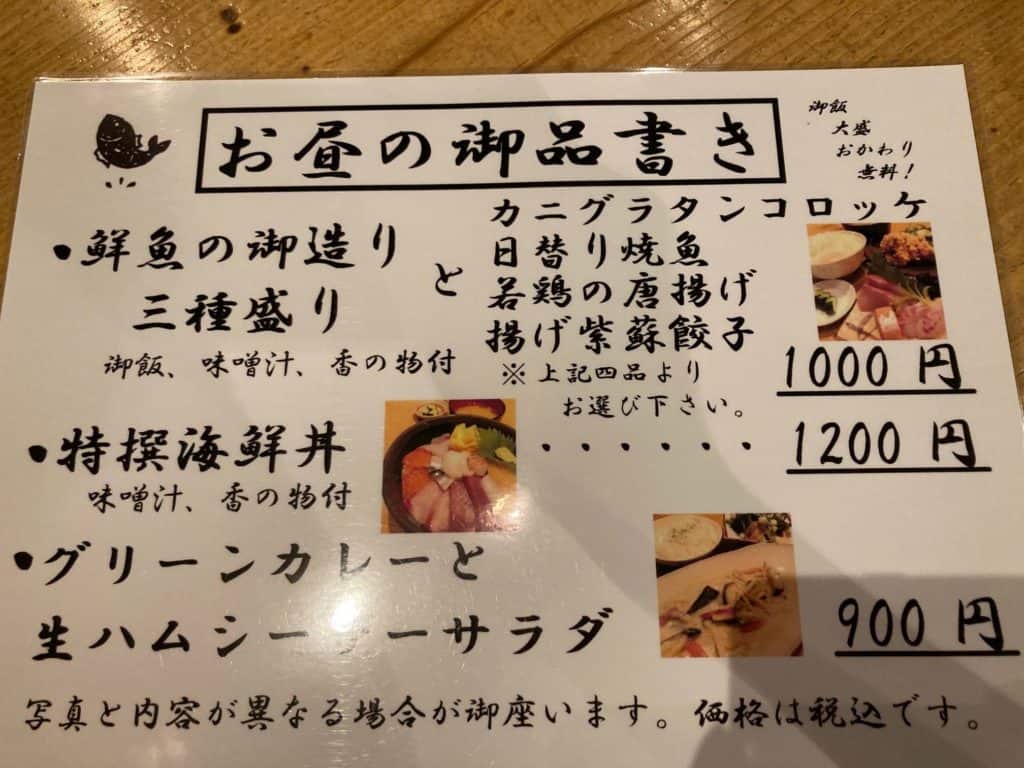 お昼の御品書き
御飯
大盛
おかわり
無料!
・鮮魚の御造り
三種盛り
と
カニグラタンコロッケ
日替り焼魚
若鶏の唐揚げ
揚げ紫蘇餃子
御飯、味噌汁、香の物付
※上記四品より
お選び下さい。
1000円
・特撰海鮮丼 ・・・・・・ 1200円
味噌汁、香の物付
・グリーンカレーと
生ハムシーザーサラダ
900円
写真と内容が異なる場合が御座います。価格は税込です。